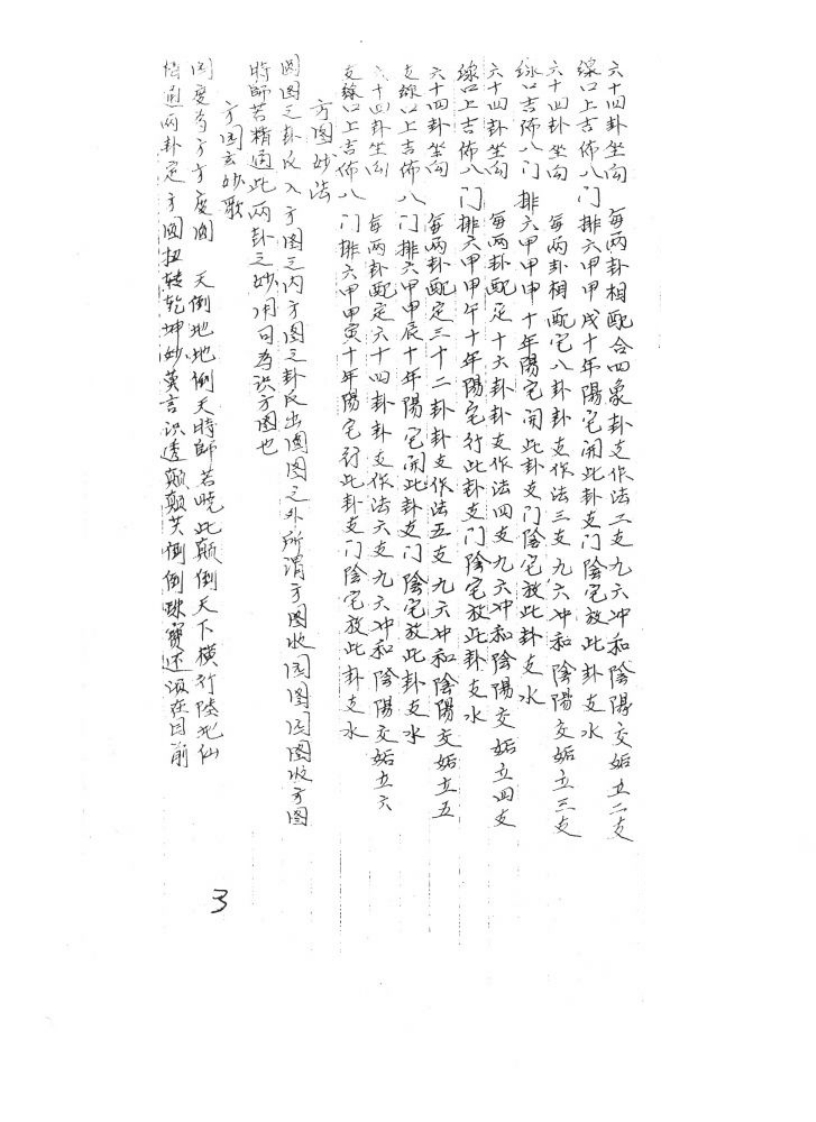 六十四卦坐向 每两卦相配合四象卦支作法二支九六冲和陰陽交姤立二支
線口上吉佈八门排六甲甲戌十年陽宅開此卦支门陰宅放此卦支水
六十四卦坐向 每两卦相配定八卦卦支作法三支九六冲和陰陽交姤立三支
線口吉佈八门 排六甲甲申十年陽宅開此卦支门陰宅放此卦支水
六十四卦坐向 每两卦配定十六卦卦支作法四支九六冲和陰陽交姤立四支
線口上吉佈八门排六甲甲午十年陽宅行此卦支门陰宅放此卦支水
六十四卦坐向 每两卦配定三十二卦卦支作法五支九六冲和陰陽交姤立五
支線口上吉佈八门排六甲甲辰十年陽宅開此卦支门陰宅放此卦支水
六十四卦坐向 每两卦配定六十四卦卦支作法六支九六冲和陰陽交姤立六
支線口上吉佈八门排六甲甲寅十年陽宅行此卦支门陰宅放此卦支水
方图妙法
圓图之卦反入方图之内方图之卦反出圓图之外所谓方图收圓图圓图收方图
時師若精通此两卦之妙用可為识方图也
方图玄妙歌
圓度为方方度圓 天倒地地倒天時師若晓此颠倒天下横行陸地仙
悟通两卦定方圓扭转乾坤妙莫言识透颠颠关倒倒 寶还须在目前
3